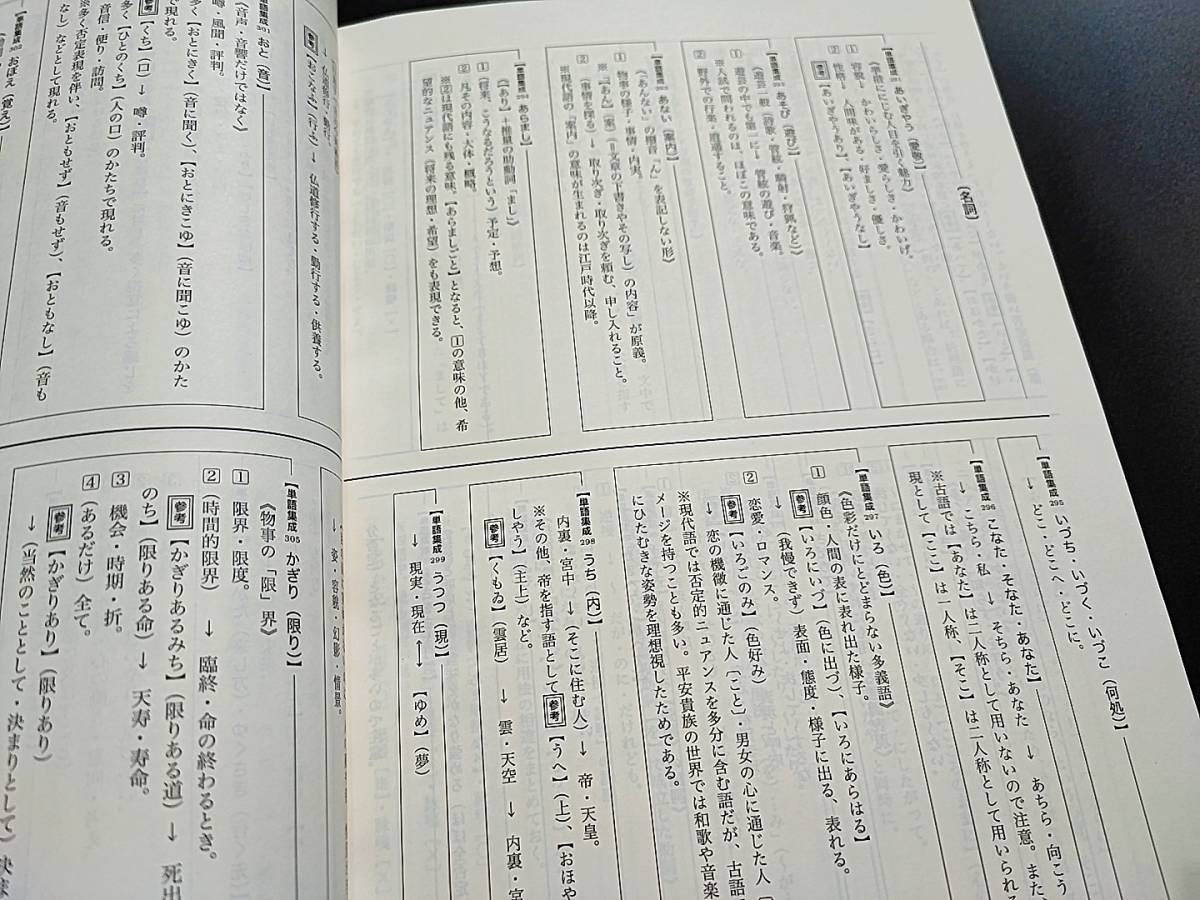 (名詞)
【単語集成291 あいぎやう(愛敬)】
《準拠ににじむ人目を引く魅力》
1 容貌 → かわいらしさ・愛らしさ・かわいげ。
2 性格 → 人間味がある・好ましさ・優しさ
参考【あいぎやうあり】【あいぎやうなし】
あそび(遊び)】
《遊芸一般(詩歌・管絃・騎射・狩猟など)》
1 遊芸の中でも第一に → 管絃の遊び・音楽。
※入試で問われるのは、ほぼこの意味である。
2 野外での行楽・逍遥すること。
あない(案内)】
《「あんない」の撥音「ん」を表記しない形》
1 物事の様子・事情・内実。
※「あん」(案)(=文章の下書きやその写し)の内容」が原義。
2 (事情を探る) → 取り次ぎ・取り次ぎを頼む、申し入れること。
※現代語の「案内」の意味が生まれるのは江戸時代以降。
【単語集成294 あらまし】
《【あり】+推量の助動詞「まし」》
1 (将来、こうなるだろうという)予定・予想。
2 凡その内容・大体・概略。
※2は現代語にも残る意味。【あらましごと】となると、1の意味の他、希
望的なニュアンス(将来の理想・希望)をも表現できる。
【単語集成295 いづち・いづく・いづこ(何処)】
→ どこ・どこへ・どこに。
【単語集成296 こなた・そなた・あなた】
→ こちら・私 → そちら・あなた → あちら・向こう
※古語では【あなた】は二人称として用いないので注意。また、
現として【ここ】は一人称、【そこ】は二人称として用いられる
【単語集成297 いろ(色)】
《色彩だけにとどまらない多義語》
1 顔色・人間の表に表れ出た様子。
参考【いろにいづ】(色に出づ)、【いろにあらはる】
→(我慢できず)表面・態度・様子に出る、表れる。
2 恋愛・ロマンス。
参考【いろごのみ】(色好み)
→ 恋の機微に通じた人(こと)・男女の心に通じた人【
※現代語では否定的ニュアンスを多分に含む語だが、古語
メージを持つことも多い。平安貴族の世界では和歌や音楽
にひたむきな姿勢を理想視したためである。
【単語集成298 うち(内)】
内裏・宮中 →(そこに住む人)→ 帝・天皇。
※その他、帝を指す語として参考【うへ】(上)、【おほや
しやう】(主上)など。
参考【くもゐ】(雲居) → 雲・天空 → 内裏・宮
【単語集成299 うつつ(現)】
→ 現実・現在 ←→【ゆめ】(夢)
→ 仏道修行・勤行。
参考【おこなふ】(行ふ) → 仏道修行する・勤行する・供養する。
【単語集成301 おと(音)】
《音声・音響だけではなく》
噂・風聞・評判。
多く【おとにきく】(音に聞く)、【おとにきこゆ】(音に聞こゆ)のかた
で現れる。
参考【くち】(口) → 噂・評判。
多く【ひとのくち】(人の口)のかたちで現れる。
音信・便り・訪問。
※多く否定表現を伴い、【おともせず】(音もせず)、【おともなし】(音も
なし)などとして現れる。
【単語集成302 おぼえ(覚え)】
→ 姿・容貌・幻影・情景。
【単語集成305 かぎり(限り)】
《物事の「限」界》
1 限界・限度。
2 (時間的限界) → 臨終・命の終わるとき。
参考【かぎりあるみち】(限りある道) → 死出
のち】(限りある命) → 天寿・寿命。
3 機会・時期・折。
4 (あるだけ)全て。
参考【かぎりあり】(限りあり)
→(当然のこととして・決まりとして)決ま